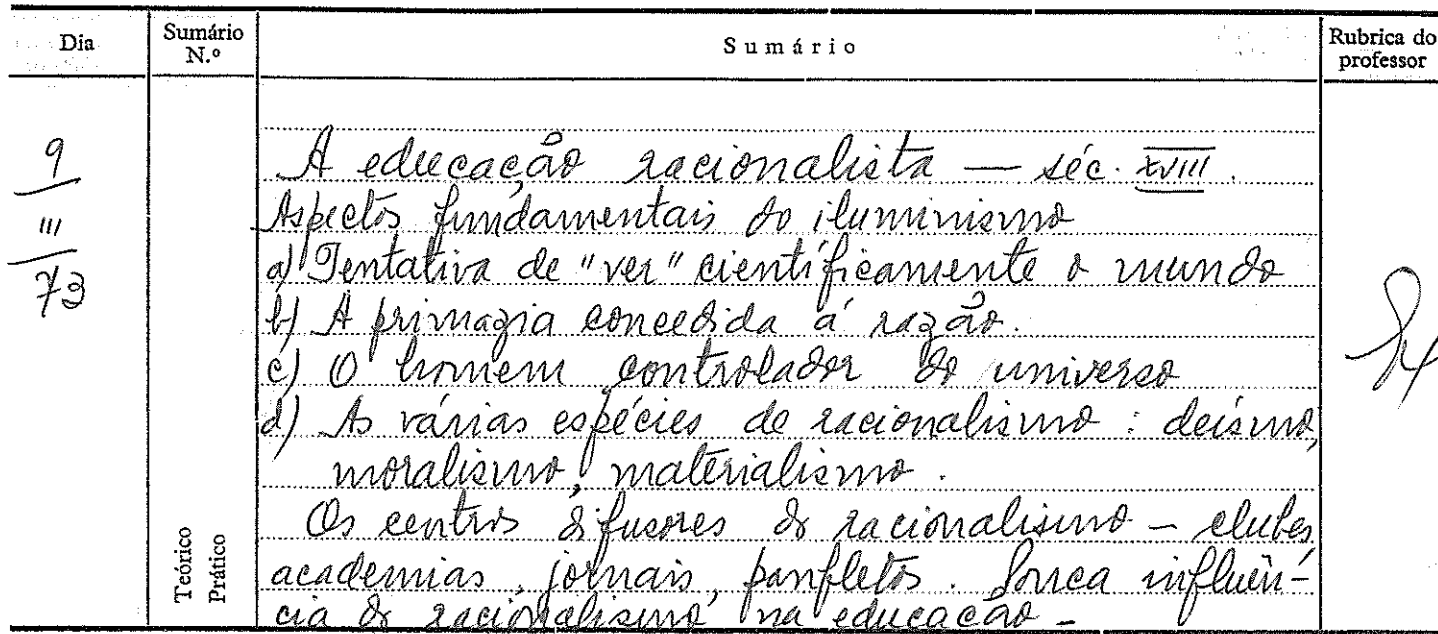 Dia
Sumário
N.º
Sumário
Rubrica do
professor
9
III
73
A educação racionalista — séc. XVIII.
Aspectos fundamentais do iluminismo
a) Tentativa de "ver" cientificamente o mundo
b) A primazia concedida á razão.
c) O homem controlador do universo
d) As várias espécies de racionalismo : deísmo,
moralismo, materialismo.
Os centros difusores do racionalismo — clubes,
academias, jornais, panfletos. Pouca influên-
cia do racionalismo na educação —
Teórico
Prático